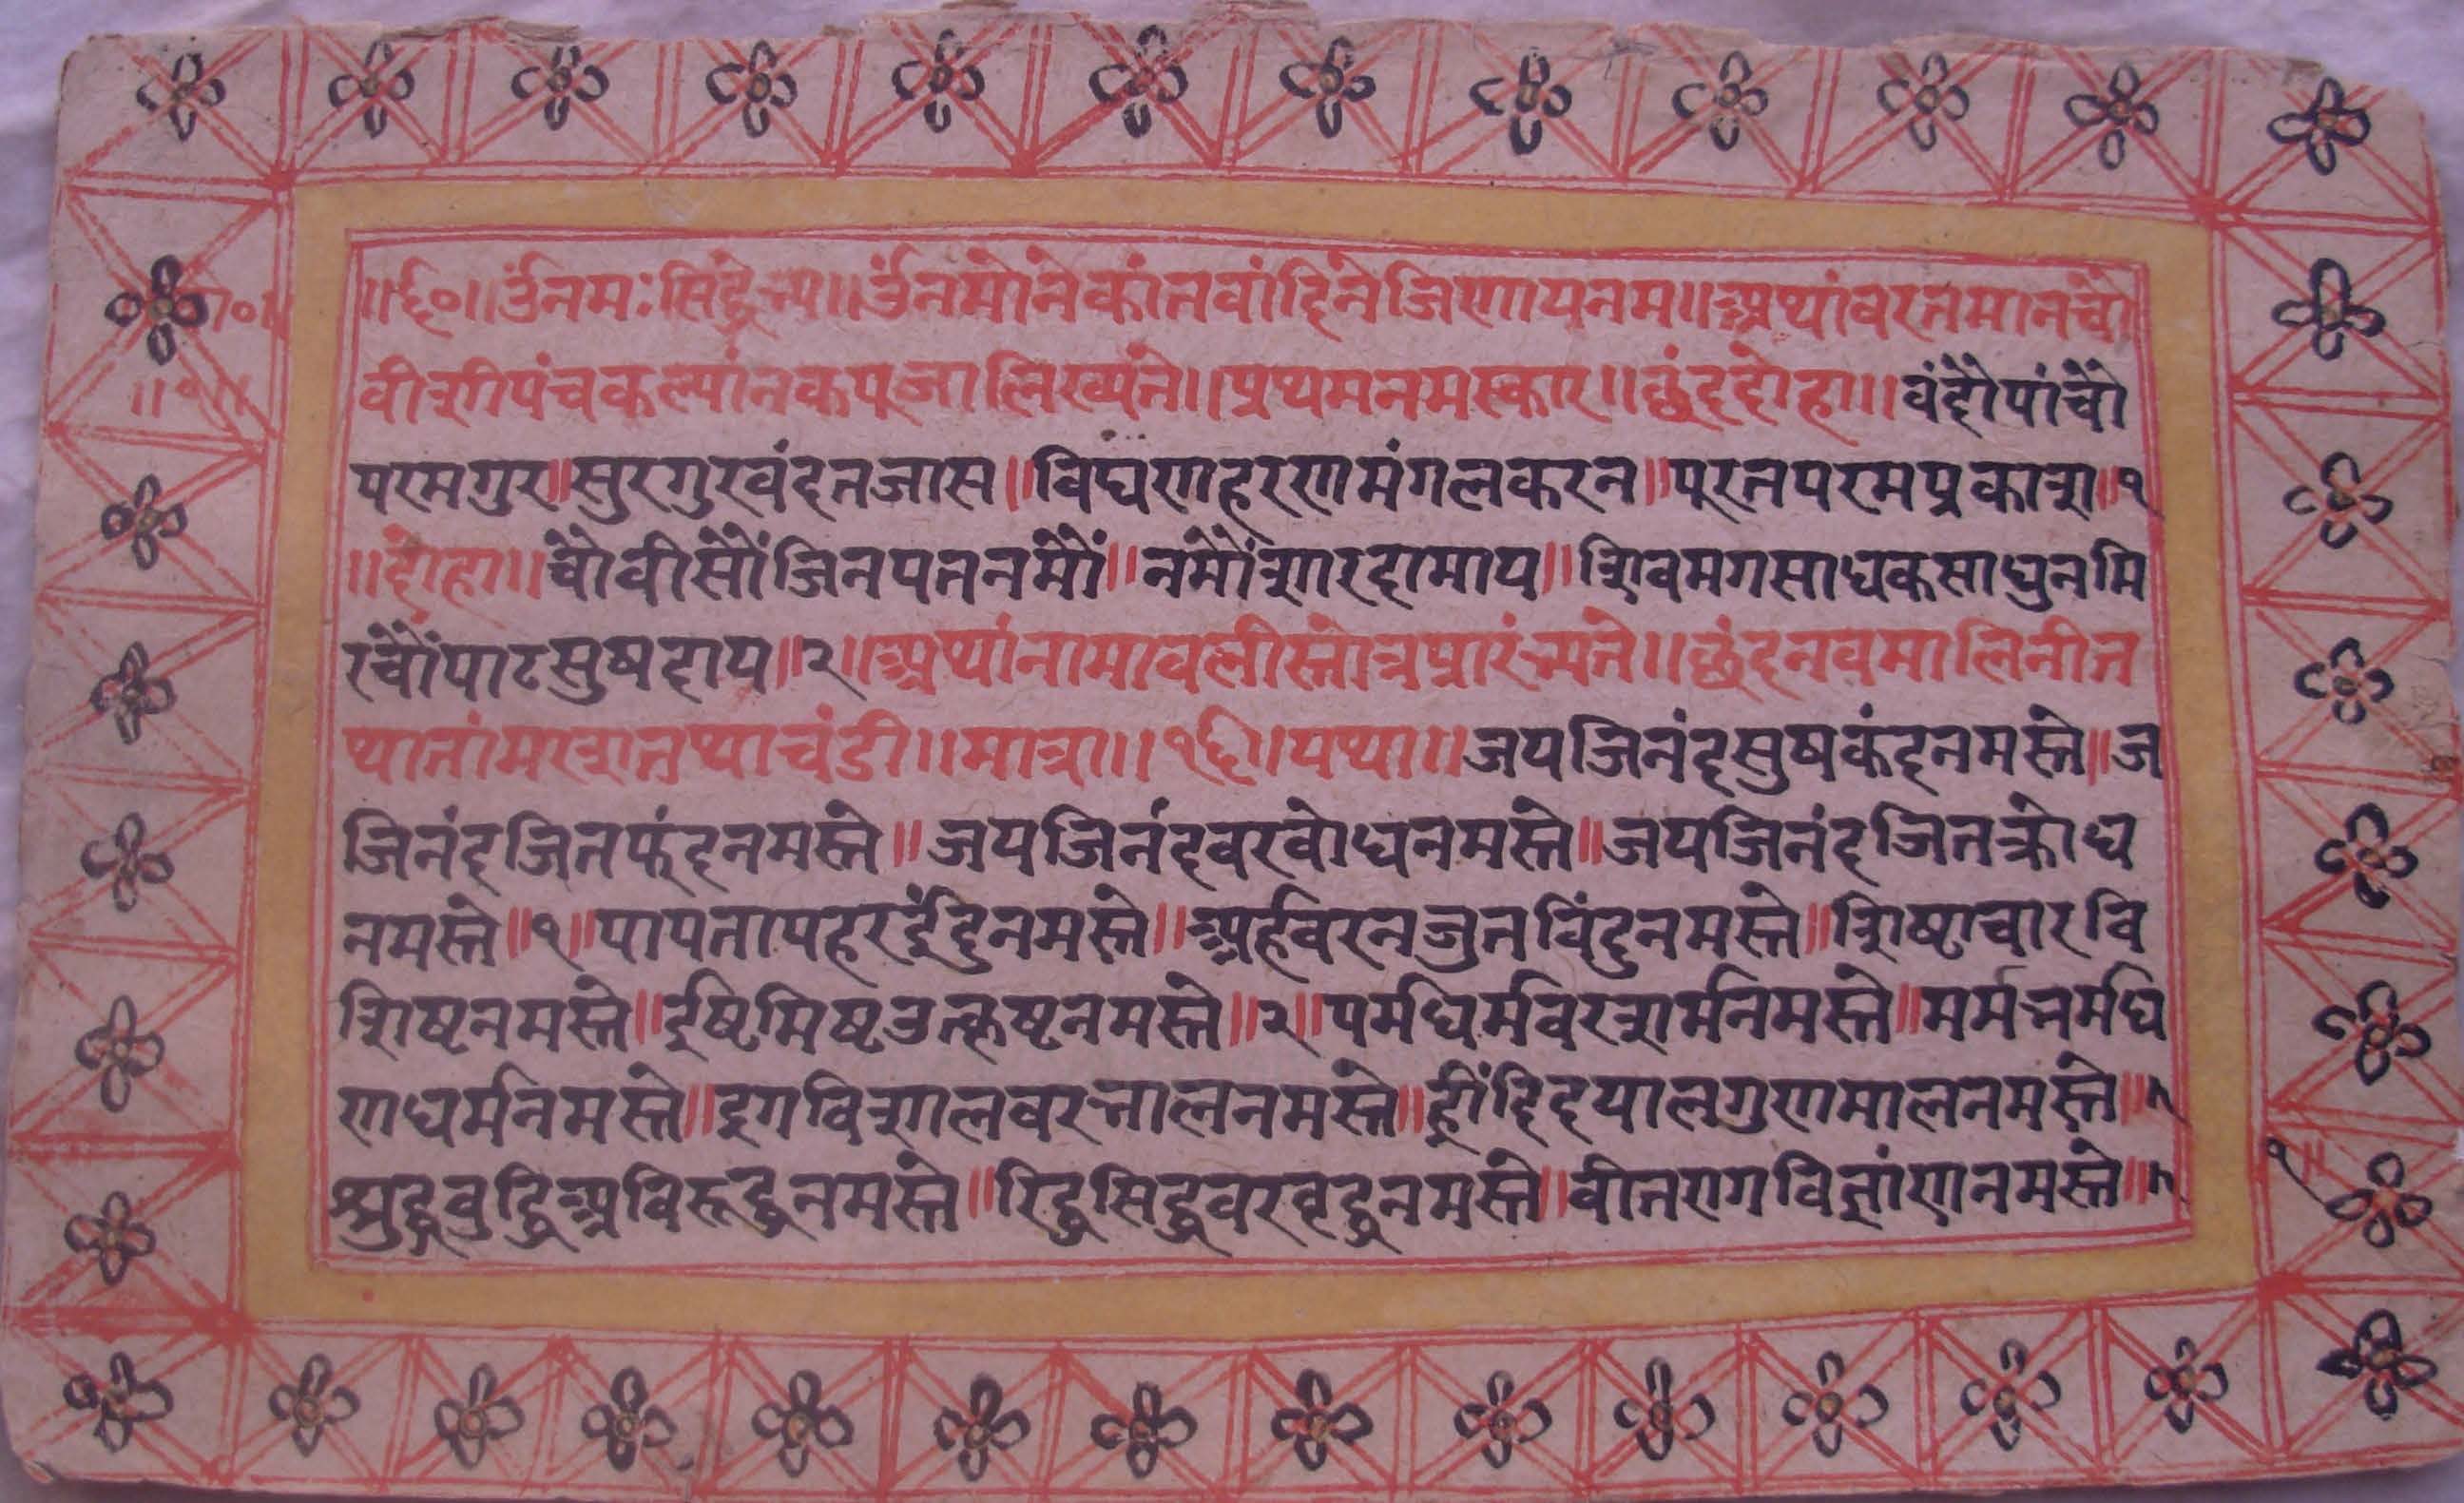 ॥६०॥ उंनमः सिद्धेभ्य॥ उंनमोंनेकांतवांदिने जिणाय नम॥ अथांवरतमानचौ
वीशीपंचकल्यांनकपूजालिख्यंते॥ प्रथमनमस्कार॥ छंददोहा॥ वंदौपांचौ
परमगुर॥ सुरगुरवंदतजास॥ विघणहरणमंगलकरन॥ पूरनपरमप्रकाश॥१
॥दोहा॥ चौवीसौंजिनपतनमौं॥ नमौंशारदामाय॥ शिवमगसाधकसाधुनमि
रचौंपाटसुषदाय॥२॥ अथांनामावलीस्तोत्रप्रारंभ्यते॥ छंदनवमालिनीत
थातांमरशतथाचंडी॥ मात्रा॥१६॥ यथा॥ जयजिनंदसुषकंदनमस्ते॥ ज
जिनंदजितफंदनमस्ते॥ जयजिनंदवरवोधनमस्ते॥ जयजिनंदजितक्रोध
नमस्ते॥१॥ पापतापहरइंदुनमस्ते॥ अर्हवरनजुतविंदुनमस्ते॥ शिष्टाचारवि
शिष्टनमस्ते॥ इष्टिमिष्टउत्कृष्टनमस्ते॥२॥ पर्मधर्मवरशर्मनमस्ते॥ मर्मभर्मघ
णधर्मनमस्ते॥ दृगविशालवरभालनमस्ते॥ ह्रींदिदयालगुणमालनमस्ते॥३
श्रुद्धवुद्धिअविरूद्धनमस्ते॥ रिद्धसिद्धवरवृद्धनमस्ते॥ वीतरागविज्ञांणनमस्ते॥
॥१॥
१॥